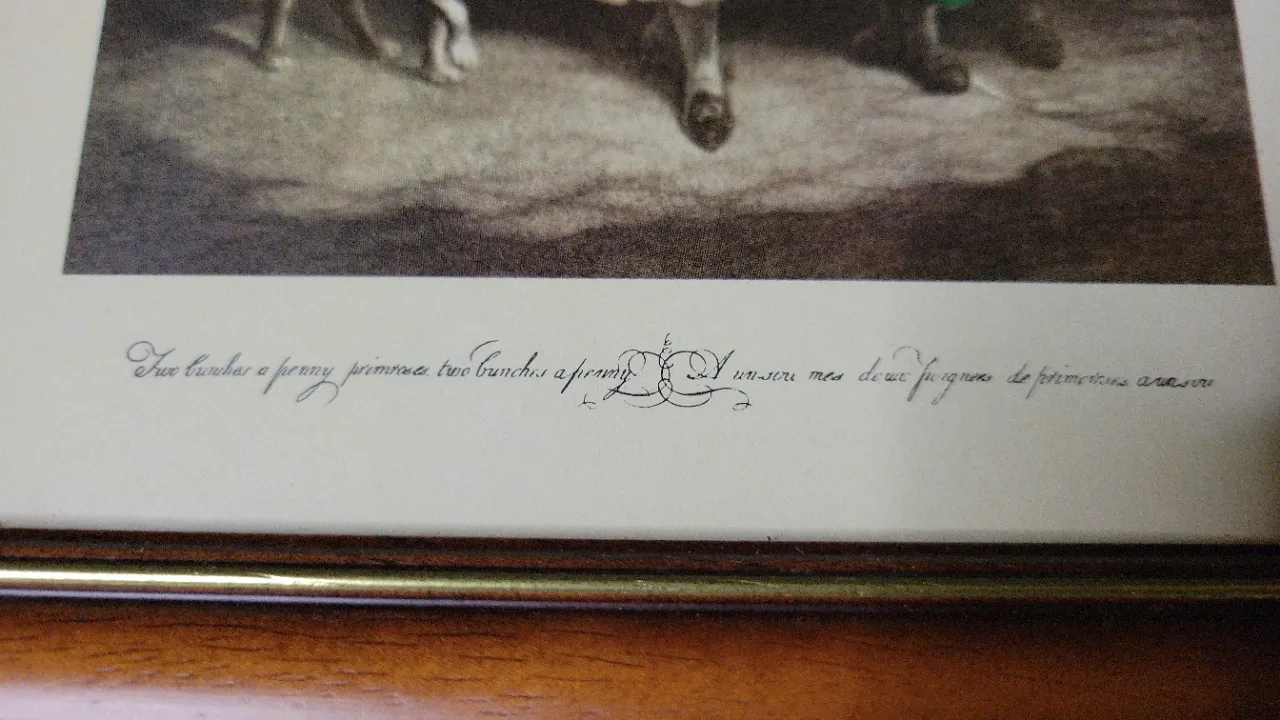 Two bunches a penny primroses, two bunches a penny A un sou mes deux poignees de primeroses a un sou